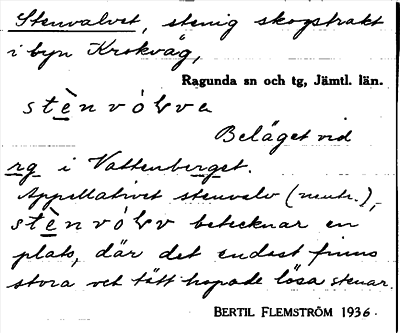 Stenvalvet, stenig skogstrakt
i byn Krokvåg,
Ragunda sn och tg, Jämtl. län.
stènvólva
Beläget vid
rg i Vattenberget.
Appellativet stenvalv (neutr.),
stènvólv betecknar en
plats, där det endast finns
stora och tätt hopade lösa stenar.
BERTIL FLEMSTRÖM 1936.